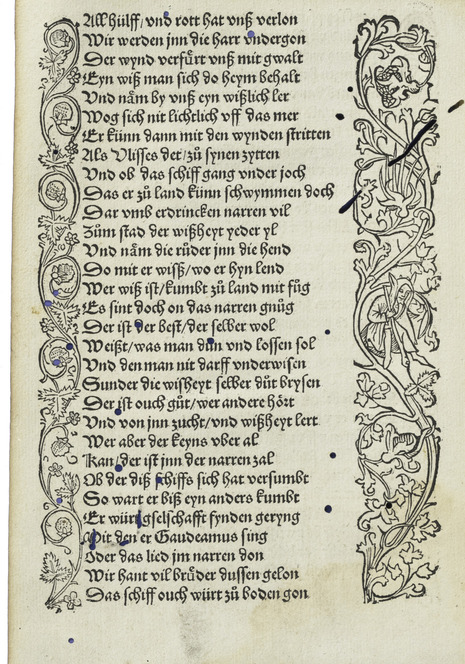 All hülff/ vnd rott hat vnß verlon
Wir werden jnn die harr vndergon
Der wynd verfürt vnß mit gwalt
Eyn wiß man sich do heym behalt
Vnd näm by vnß eyn wißlich ler
Wog sich nit lichtlich vff das mer
Er künn dann mit den wynden stritten
Als Vlisses det/ zů synen zytten
Vnd ob das schiff gang vnder joch
Das er zů land künn schwymmen doch
Dar vmb erdrincken narren vil
Zům stad der wißheyt yeder yl
Vnd näm die růder jnn die hend
Do mit er wisß/ wo er hyn lend
Wer wiß ist/ kumbt zů land mit fůg
Es sint doch on das narren gnůg
Der ist der best/ der selber wol
Weißt/ was man důn vnd lossen sol
Vnd den man nit darff vnderwisen
Sunder die wisheyt selber důt brysen
Der ist ouch gůt/ wer andere hört
Vnd von jnn zucht/ vnd wißheyt lert
Wer aber der keyns vber al
Kan/ der ist jnn der narren zal
Ob der diß schiffs sich hat versumbt
So wart er biß eyn anders kumbt
Er würt gselschafft fynden geryng
Mit den er Gaudeamus sing
Oder das lied jm narren don
Wir hant vil brůder dussen gelon
Das schiff ouch würt zů boden gon